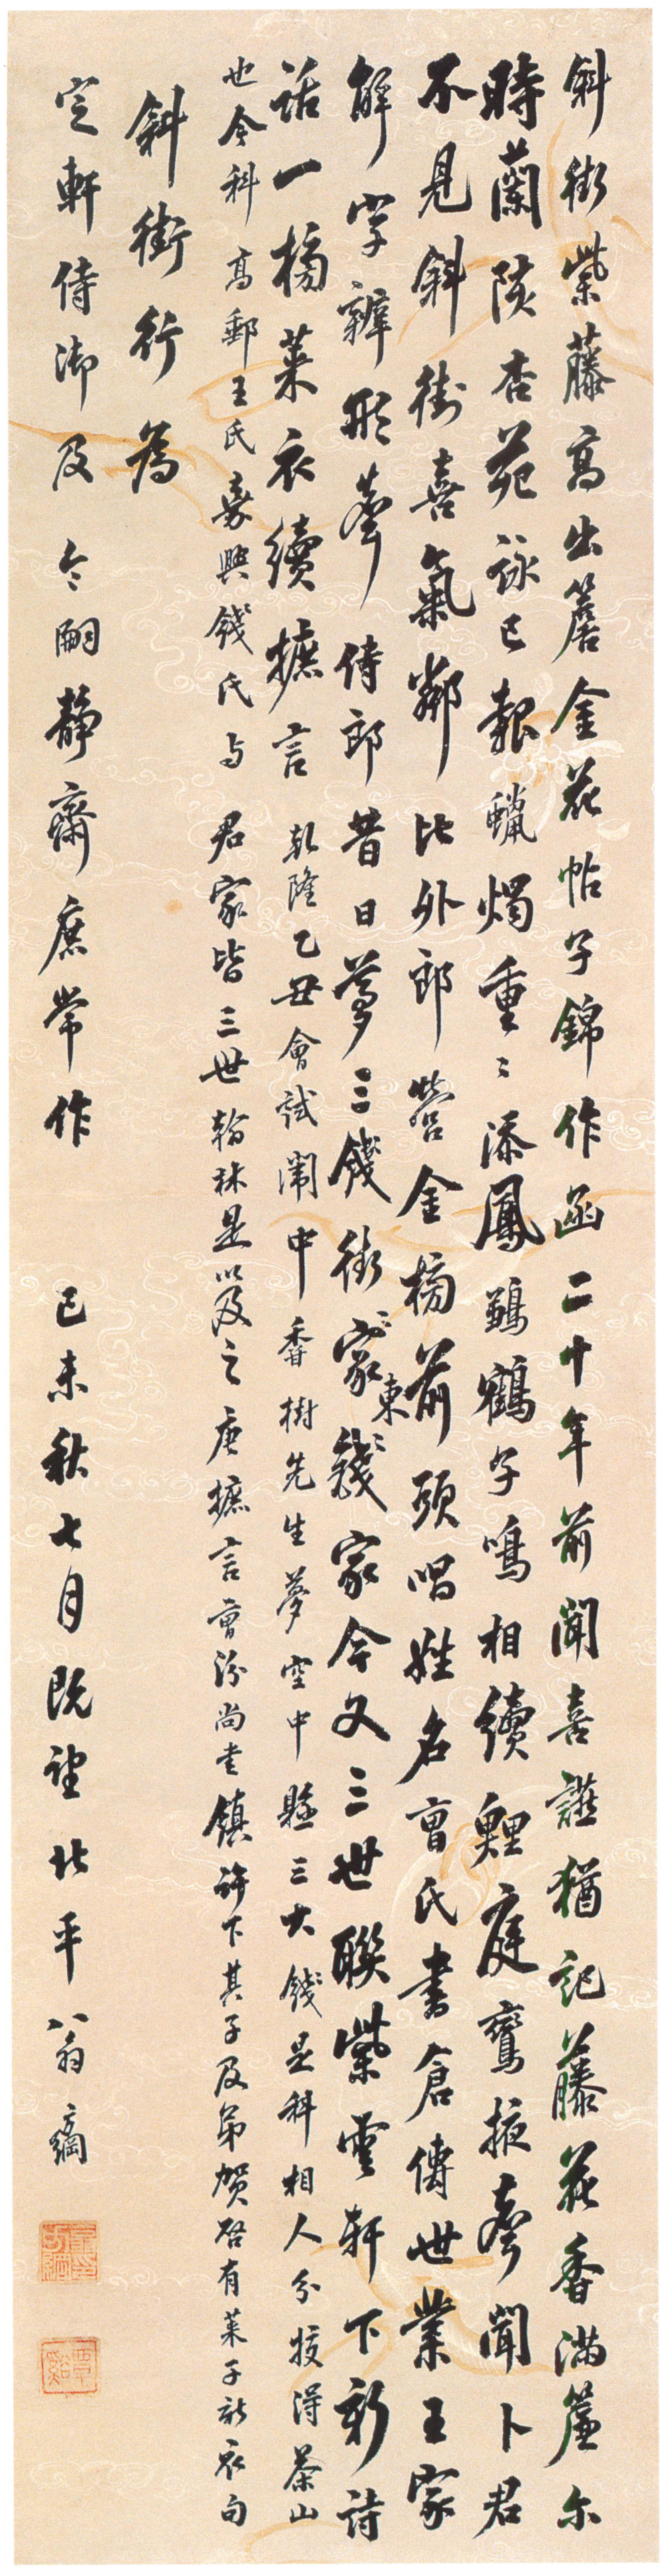 斜街紫藤高出簷金花帖子錦作函二十年前聞喜讌猶記藤花香滿簾尔
時蘭陔杏苑詠已報蠟燭重〻添鳳鷂鶴子鳴相續鯉庭鸞掖聲聞卜君
不見斜街喜氣鄰比外郎營金榜前頭唱姓名曹氏書倉傳世業王家
解字辨形聲侍郎昔日夢三錢街東家〻錢家今又三世聯紫雲軒下新詩
話一榜萊衣續摭言 乾隆乙丑會試闈中香樹先生夢空中懸三大錢是科相人分授得茶山
也今科高郵王氏嘉興錢氏与君家皆三世翰林是以及之唐摭言曹汾尚書鎮許下其子及弟賀啓有萊子新衣句
斜街行為
定軒侍御及令嗣靜齋庶常作 己未秋七月既望北平翁方綱